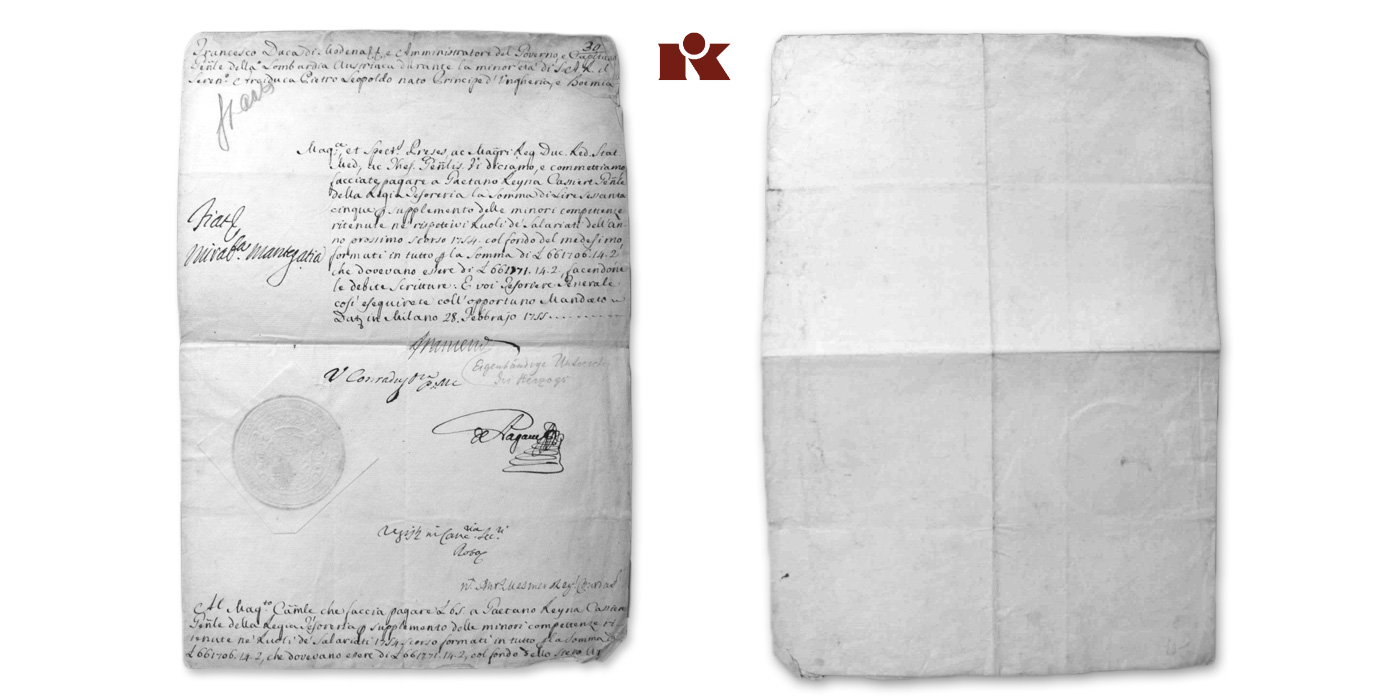 Francesco Duca di Modena &c, e Amministratore del Governo, e Capitano
30
Gen̄le della Lombardia Austriaca durante la minorità di S.A.R. il
Seren.mo Arciduca Pietro Leopoldo nato Principe d'Ungheria, e Boemia
Mag.ci et Spect.s Preses ac Mag̃ri Reg. Duc. Red. Stat.
Med., ac Thes. Gen̄lis. Vi diciamo, e commettiamo
facciate pagare a Gaetano Reyna Cassiere Gen̄le
della Regia Tesoreria la Somma di Lire sessanta
cinque p supplemento delle minori competenze
ritenute ne' rispettivi Ruoli de' Salariati dell'an-
no prossimo scorso 1754. col fondo del medesimo,
formati in tutto p la Somma di £ 661706.14.2
che dovevano essere di £ 661771.14.2, facendone
le debite Scritture. E voi Tesoriere Generale
così eseguirete coll'opportuno Mandato
Dat. in Milano 28. Febbrajo 1755.
Fiat
Mantegatia
V Conradus
Eigenhändige Unterschr.
des Herzogs
de Pagave
Al Mag.to Cam̄le che faccia pagare £ 65. a Gaetano Reyna Cassiere
Gen̄le della Regia Tesoreria p supplemento delle minori competenze ri-
tenute ne' Ruoli de' Salariati 1754. scorso formati in tutto p la Somma di
£ 661706.14.2, che dovevano essere di £ 661771.14.2, col fondo dello stesso